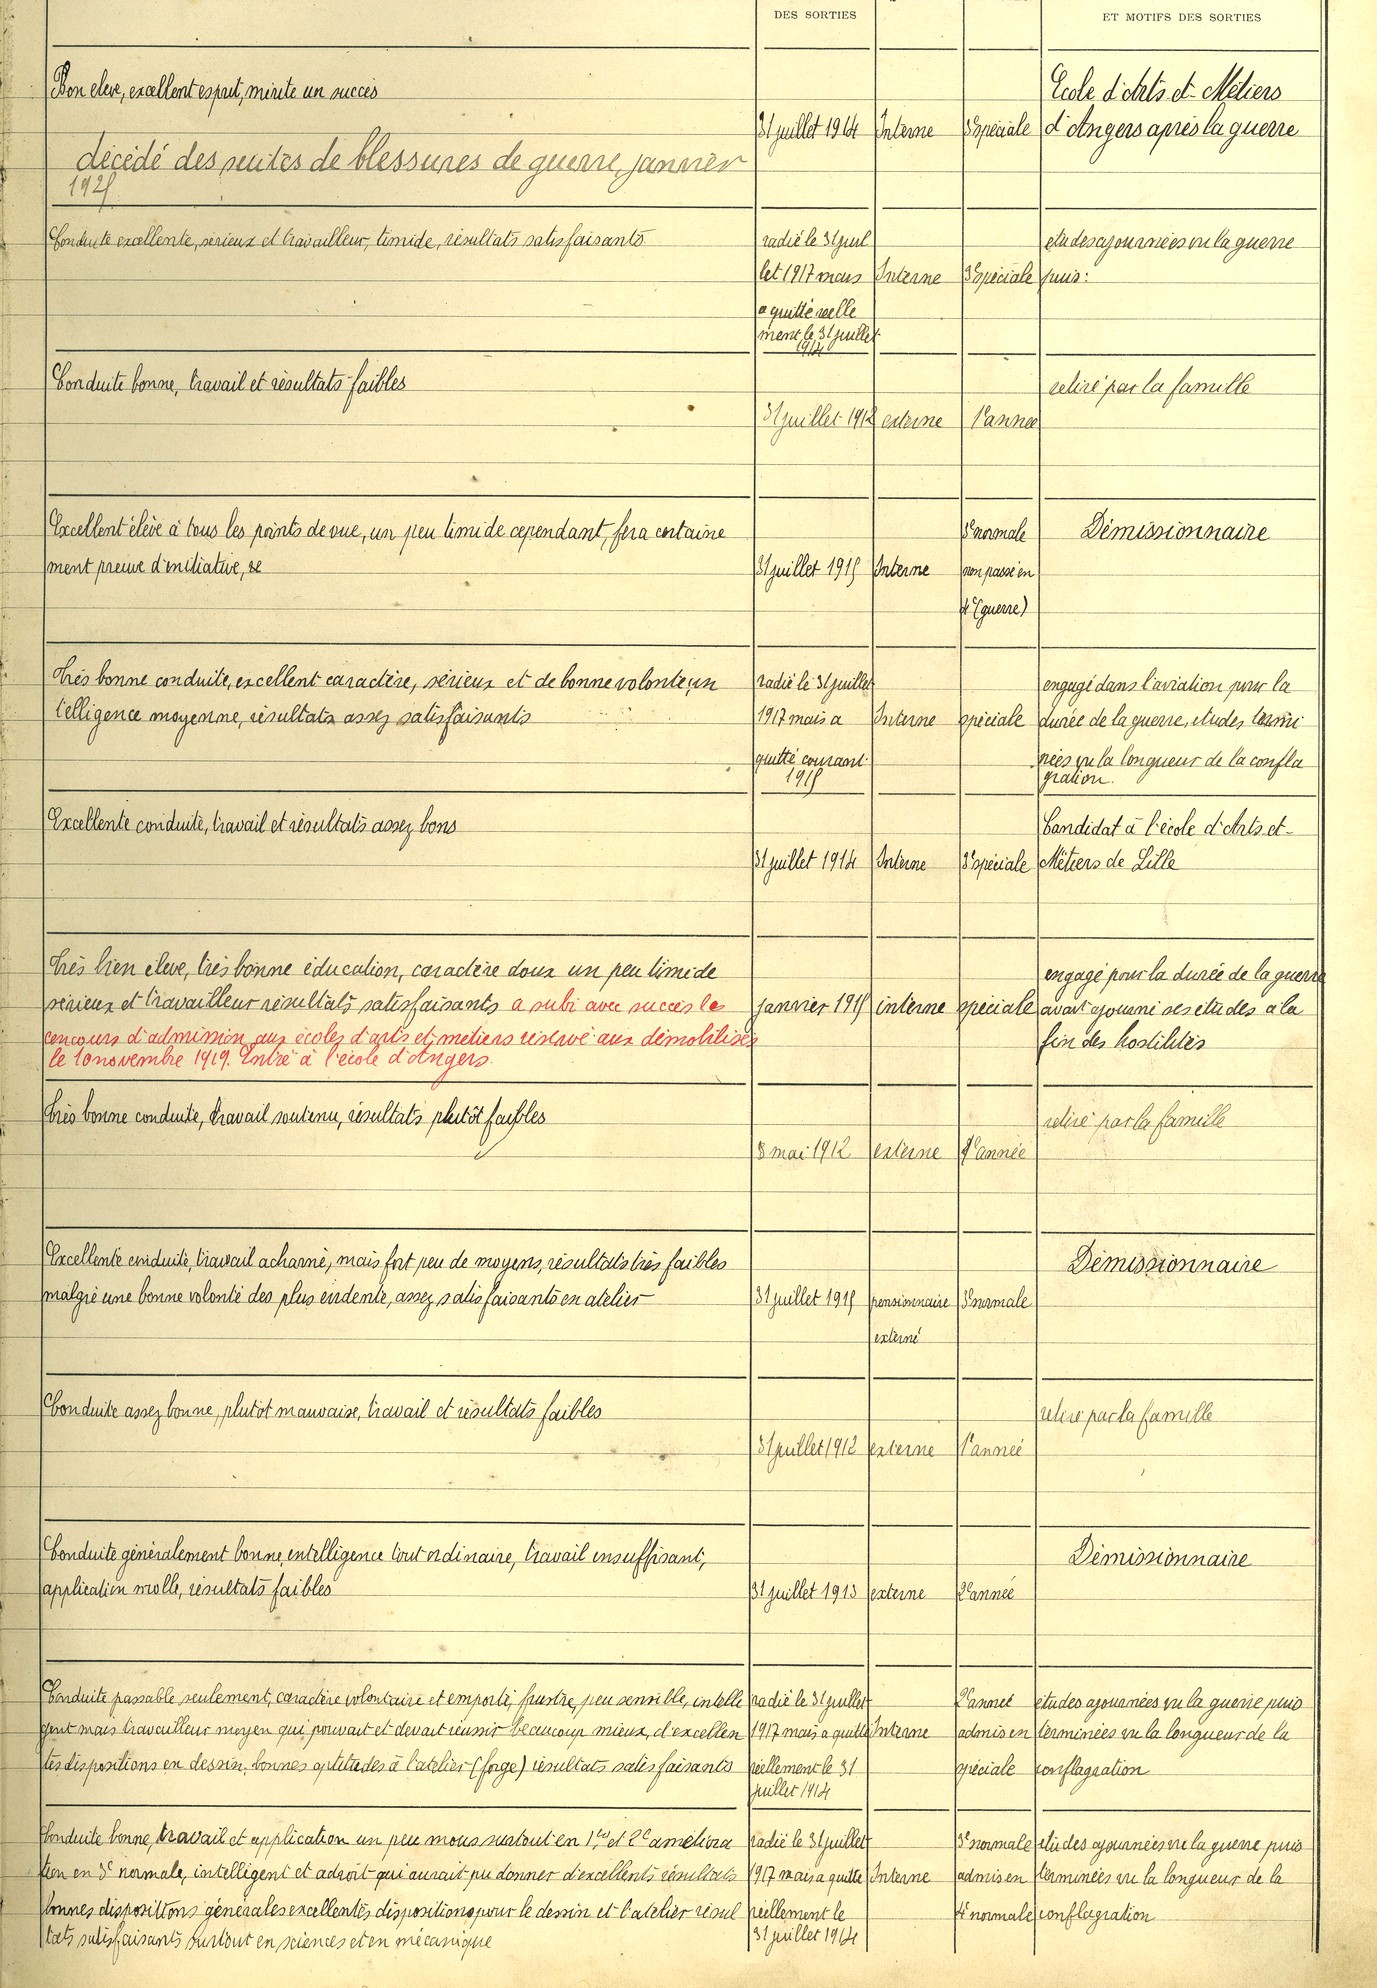 DES SORTIES
ET MOTIFS DES SORTIES
Bon élève, excellent esprit, mérite un succès
décédé des suites de blessures de guerre, janvier
1925
31 juillet 1914
Interne
3e spéciale
Ecole d'Arts et Métiers
d'Angers après la guerre
Conduite excellente, sérieux et travailleur, timide, résultats satisfaisants
radié le 31 juil
let 1917 mais
a quitté réelle
ment le 31 juillet
1914
Interne
3e spéciale
études ajournées vu la guerre
puis:
Conduite bonne, travail et résultats faibles
31 juillet 1912
externe
1e année
retiré par la famille
Excellent élève à tous les points de vue, un peu timide cependant, fera certaine
ment preuve d'initiative, se
31 juillet 1915
Interne
3e normale
non passé en
4e (guerre)
Démissionnaire
Très bonne conduite, excellent caractère, sérieux et de bonne volonté, in
telligence moyenne, résultats assez satisfaisants
radié le 31 juillet
1917 mais a
quitté courant
1915
Interne
spéciale
engagé dans l'aviation pour la
durée de la guerre, études termi
nées vu la longueur de la confla
gration.
Excellente conduite, travail et résultats assez bons
31 juillet 1914
Interne
3e spéciale
Candidat à l'école d'Arts et
Métiers de Lille
Très bien élevé, très bonne éducation, caractère doux un peu timide
sérieux et travailleur résultats satisfaisants a subi avec succès le
concours d'admission aux écoles d'arts et métiers réservé aux démobilisés
le 10 novembre 1919. Entré à l'école d'Angers.
janvier 1915
interne
spéciale
engagé pour la durée de la guerre
avait ajourné ses études à la
fin des hostilités
Très bonne conduite, travail soutenu, résultats plutôt faibles
8 mai 1912
externe
1e année
retiré par la famille
Excellente conduite, travail acharné, mais fort peu de moyens, résultats très faibles
malgré une bonne volonté des plus évidente, assez satisfaisants en atelier
31 juillet 1915
pensionnaire
externé
3e normale
Démissionnaire
Conduite assez bonne, plutôt mauvaise, travail et résultats faibles
31 juillet 1912
externe
1e année
retiré par la famille
Conduite généralement bonne, intelligence tout ordinaire, travail insuffisant,
application molle, résultats faibles
31 juillet 1913
externe
2e année
Démissionnaire
Conduite passable, seulement, caractère volontaire et emporté, frustre, peu sensible, intelli
gent mais travailleur moyen qui pouvait et devait réussir beaucoup mieux, d'excellen
tes dispositions en dessin, bonnes aptitudes à l'atelier (forge) résultats satisfaisants
radié le 31 juillet
1917 mais a quitté
réellement le 31
juillet 1914
Interne
2e année
admis en
spéciale
études ajournées vu la guerre puis
terminées vu la longueur de la
conflagration
Conduite bonne, travail et application un peu mous surtout en 1re et 2e améliora
tion en 3e normale, intelligent et adroit qui aurait pu donner d'excellents résultats
bonnes dispositions générales excellentes dispositions pour le dessin et l'atelier résul
tats satisfaisants surtout en sciences et en mécanique
radié le 31 juillet
1917 mais a quitté
réellement le
31 juillet 1914
Interne
3e normale
admis en
4e normale
études ajournées vu la guerre puis
terminées vu la longueur de la
conflagration